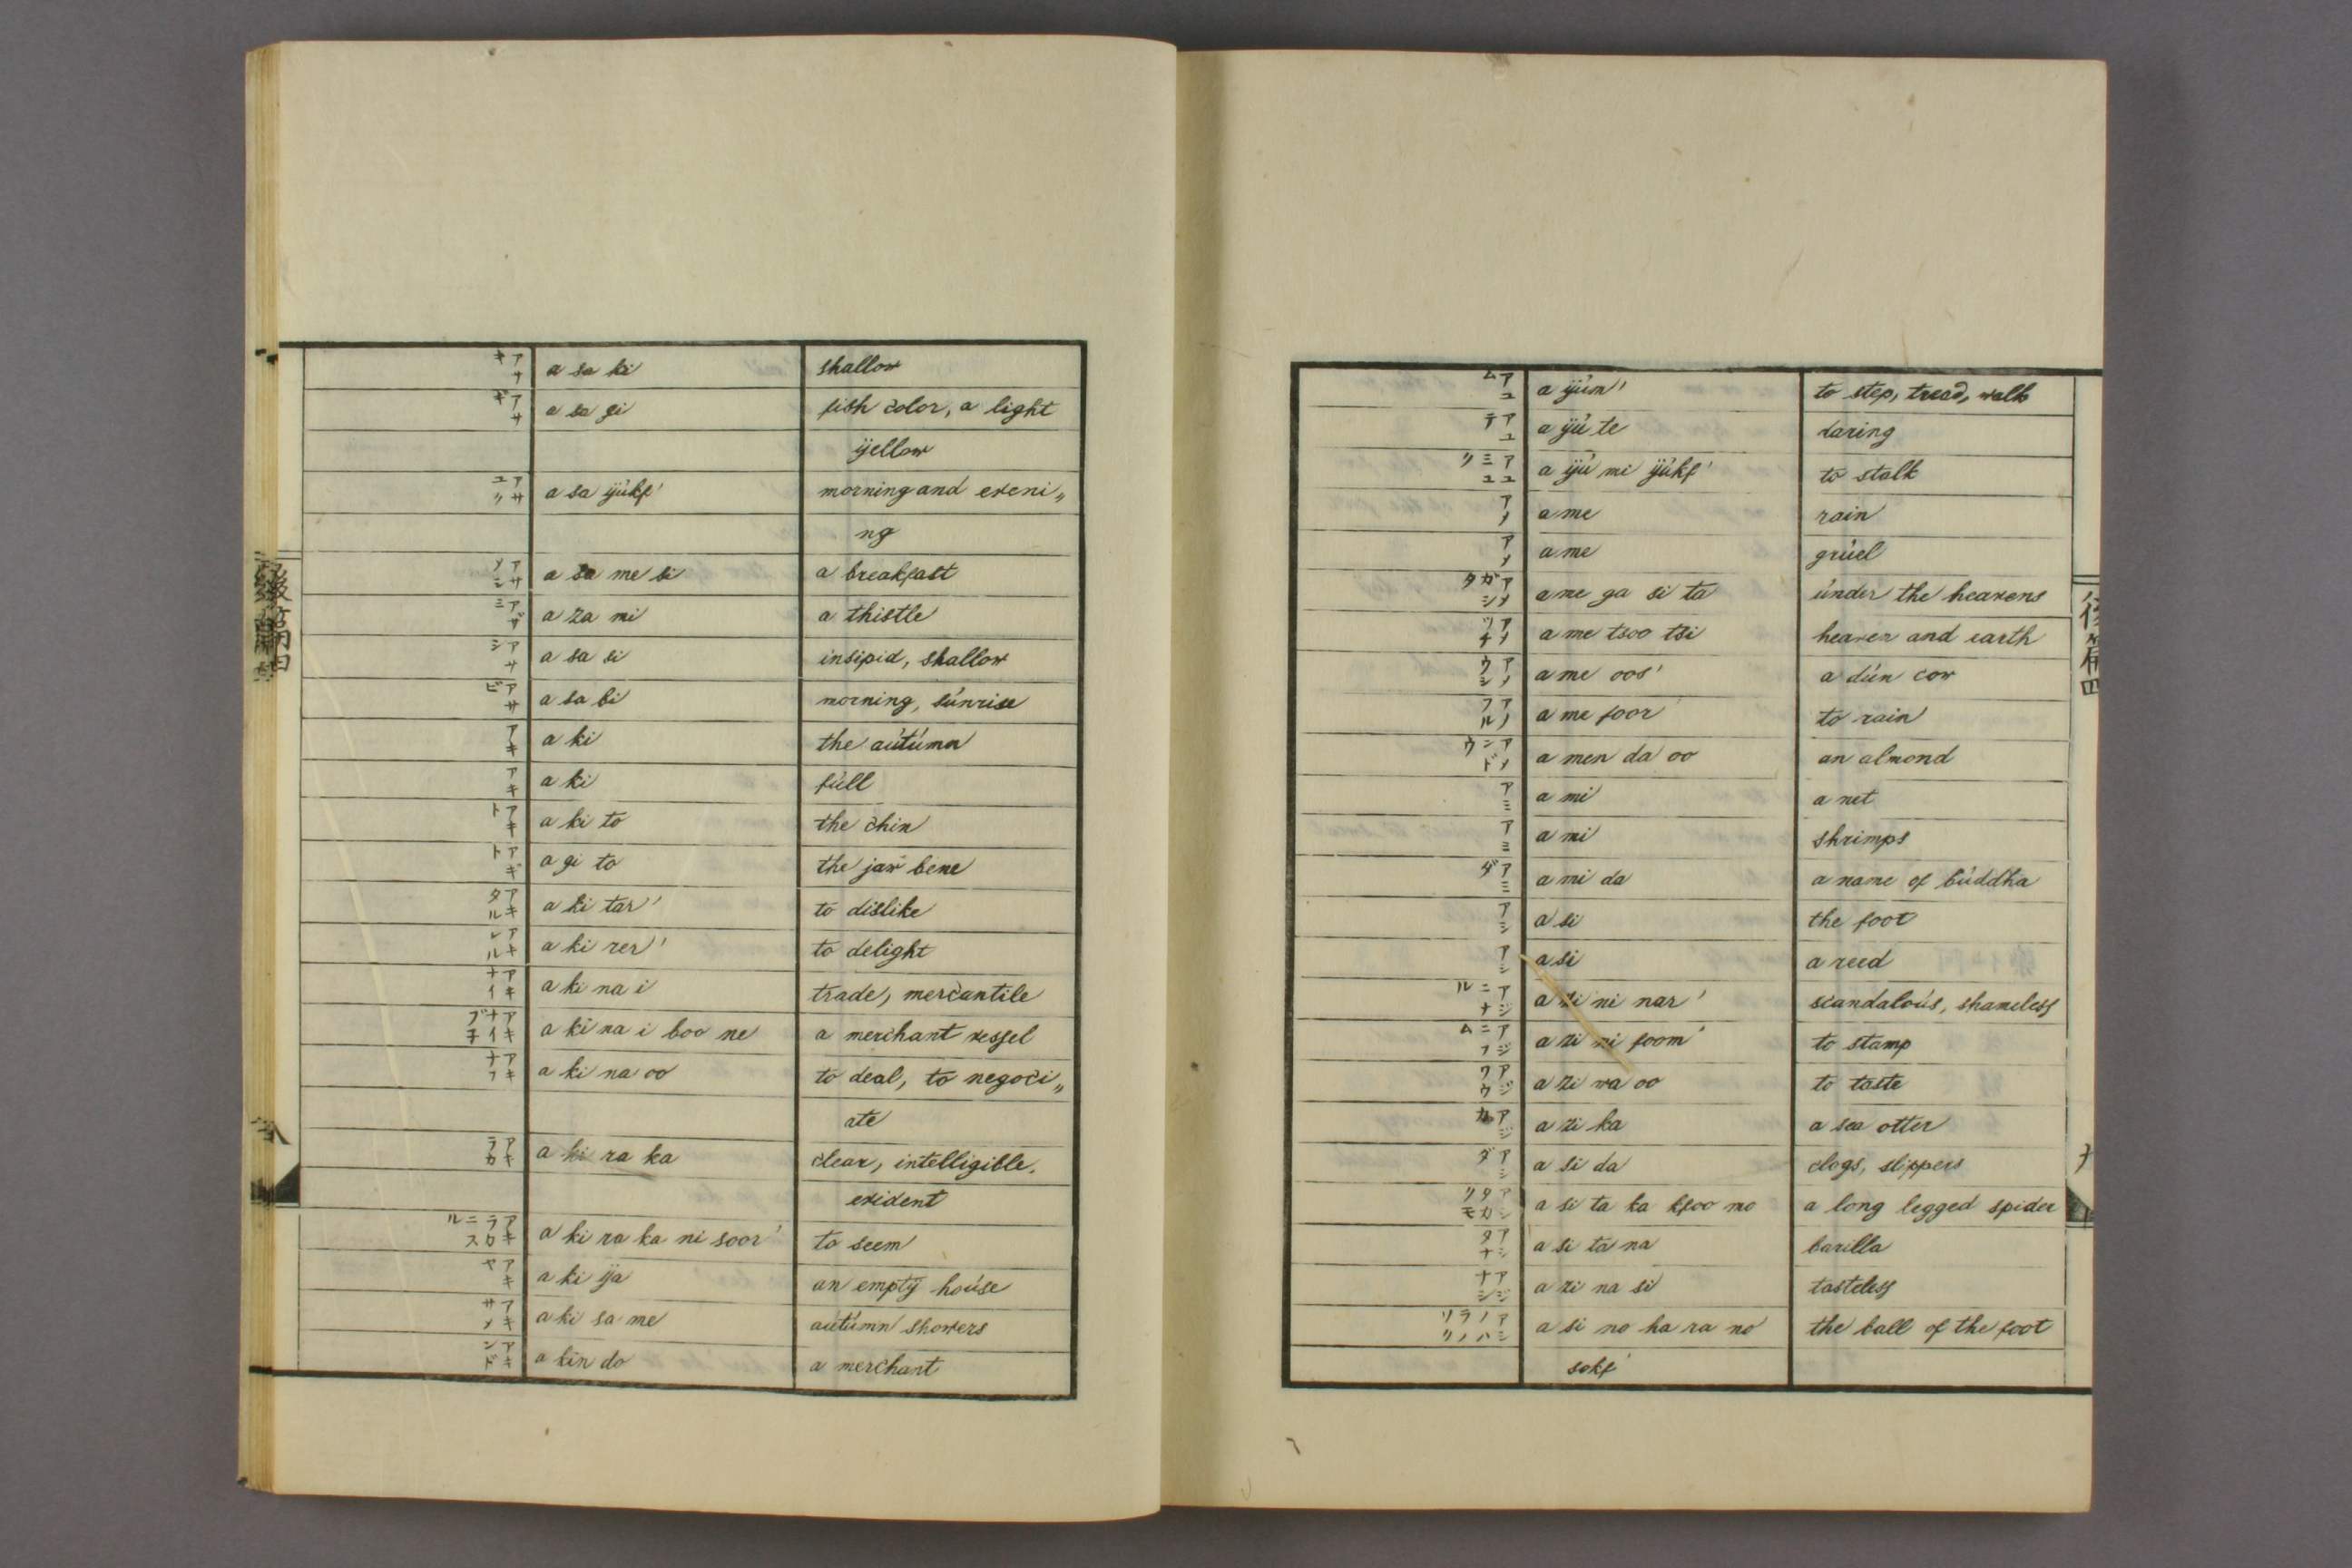 キアサ a sa ki shallow
ギアサ a sa gi fish color, a light
ÿellow
ユアリサ a sa ÿúkf' morning and eveni„
ng
メアシサ a sa me si a breakfast
ミアザ a za mi a thistle
シアサ a sa si insipid, shallow
ビアサ a sa bi morning, súnrise
アキ a ki the aútúmn
アキ a ki fúll
トアキ a ki to the chin
トアギ a gi to the jaw bene
タアルキ a ki tar' to dislike
レアルキ a ki rer' to delight
ナアイキ a ki na i trade, mercantile
ブナア子イキ a ki na i boo ne a merchant vessel
ナアフキ a ki na oo to deal, to negoci„
ate
ラアカキ a ki ra ka clear, intelligible.
evident
ルニラアスカキ a ki ra ka ni soor' to seem
ヤアキ a ki ÿa an emptÿ hoúse
サアメキ a ki sa me aútúmn showers
ンアドキ a kin do a merchant
後篇四
ムアユ a ÿúm' to step, tread, walk
テアユ a ÿú te daring
リミアユユ a ÿú mi ÿúkf' to stalk
アメ a me rain
アメ a me grúel
タガアシメ a me ga si ta únder the heavens
ツアチメ a me tsoo tsi heaven and earth
ウアシメ a me oos' a dún cow
フアルメ a me foor' to rain
ウンアドメ a men da oo an almond
アミ a mi a net
アミ a mi shrimps
ダアミ a mi da a name of búddha
アシ a si the foot
アシ a si a reed
ルニアナジ a zi ni nar' scandaloús, shameless
ムニアフジ a zi ni foom' to stamp
ワアウジ a zi wa oo to taste
カアジ a zi ka a sea otter
ダアシ a si da clogs, slippers
リタアモカシ a si ta ka kfoo mo a long legged spider
タアナシ a si ta na barilla
ナアシジ a zi na si tasteless
リラノアリノハシ a si no ha ra no the ball of the foot
sokf'